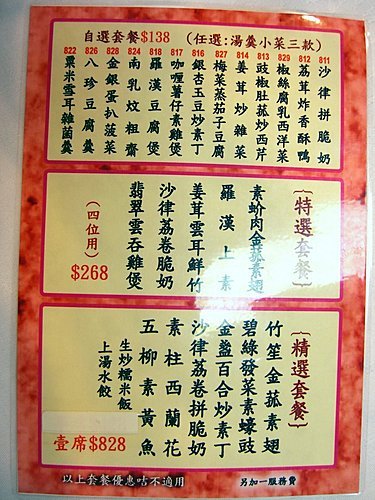 自選套餐$138 (任選:湯羹小菜三款)
811 沙律拼脆奶
812 荔茸炸香酥鴨
829 椒絲腐乳西洋菜
813 豉椒肚菰炒西芹
814 姜茸炒雜菜
827 梅菜蒸茄子豆腐
816 銀杏玉豆炒素丁
817 咖喱薯仔素雞煲
818 羅漢豆腐煲
824 南乳炆粗齋
828 金銀蛋扒菠菜
826 八珍豆腐羹
822 粟米雪耳雜菌羹
{特選套餐}
素蚧肉金菰素翅
羅漢上素
姜茸雲耳鮮竹
沙律荔卷脆奶
翡翠雲吞雞煲
(四位用)
$268
{精選套餐}
竹笙金菰素翅
碧綠發菜素蠔豉
金盞百合炒素丁
沙律荔卷拼脆奶
素柱西蘭花
五柳素黃魚
生炒糯米飯
上湯水餃
壹席$828
以上套餐優惠咭不適用
另加一服務費